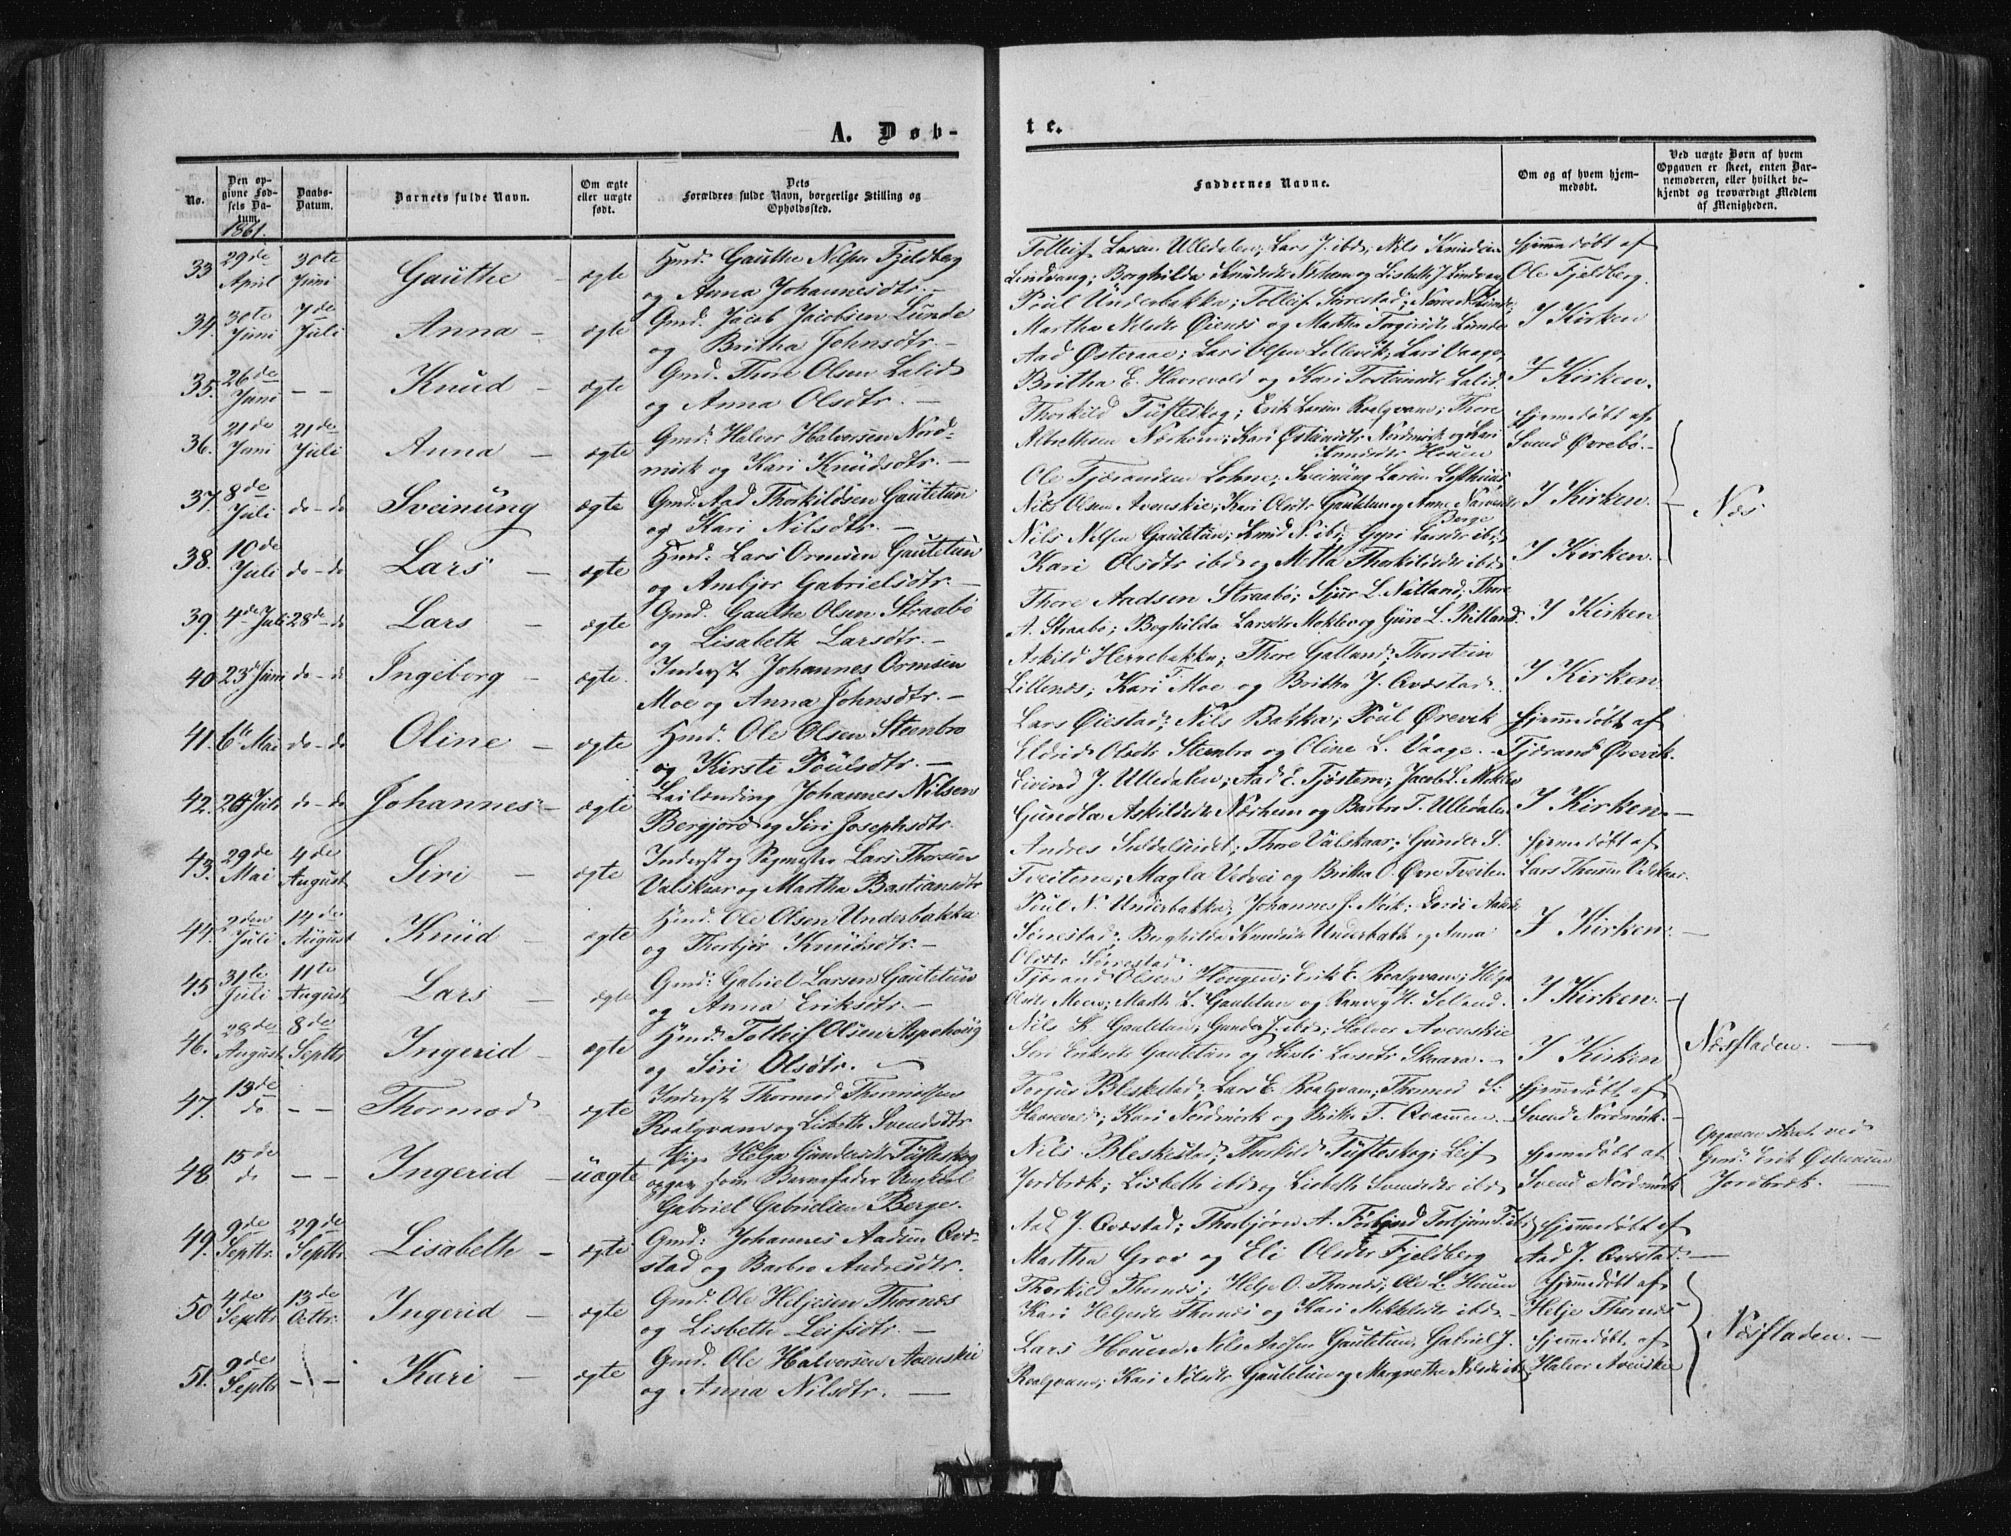 A. Døb-
te.
No.
Den opgivne Fødsels Datum.
Daabs-Datum.
Barnets fulde Navn.
Om ægte eller uægte født.
Dets Forældres fulde Navn, borgerlige Stilling og Opholdssted.
Faddernes Navne.
Om og af hvem hjemmedøbt.
Ved uægte Børn af hvem Opgaven er skeet, enten Barnemoderen, eller hvilket bekjendt og troværdigt Medlem af Menigheden.
1861.
33. 29de April 30te Juni Gauthe - ægte Gauthe Nelsen Fjeldberg og Anna Johannesdtr. -
Hjemmedøbt af Ole Fjeldberg.
34. 30te Juni 7de Juli Anna - ægte Gmd. Jacob Jacobsen Lunde og Britha Johnsdtr. -
Martha Øienes og Martha
I Kirken
35. 26de Juni - - Knud - ægte Gmd. Thore Olsen Lalid og Anna Olsdtr. -
Aad Østeraae; Lars Olsen Lars Vaage, Britha E. Havrevold og Kari
I Kirken.
36. 21de Juni 21de Juli Anna - ægte Gmd. Halvor Halvorsen Nordmork og Kari Knudsdtr. -
Thorkild Tufteskog; Erik Larsen Roalqvam; Thore
Hjemmedøbt af Svend Øvrebø. -
37. 8de Juli do - do Sveinung ægte Gmd. Aad Thorkildsen Gautetun og Kari Nilsdtr. -
Nils Olsen Avenskie; Kari Olsdtr Gautetun og Anna
I Kirken.
Næs
38. 10de Juli do - do Lars - ægte Lars Ormsen Gautetun og Ambjør Gabrielsdtr. -
Nils Nelsen Gautetun; Knud N. ibd; Larsdtr ibd; Kari Olsdtr ibd og Metta Thorkildsdtr ibd
I Kirken.
39. 4de Juli 28de do Lars - ægte Gmd. Gauthe Olsen Straabø og Lisabeth Larsdtr. -
Thore Aadsen Straabø; Sjur L. Natland; Thore A. Straabø; Boghilda Larsdtr og Guro L. Ritland
I Kirken
40 23d Juni do - do Ingeborg - ægte. Inderst Johannes Ormsen Moe og Anna Johnsdtr. -
Askild Herrebakka; Thore Galland; Thorstein Lillenes; Kari T. Moe og Britha J. Qvæstad.
I Kirken
41. 6te Mai do - do Oline - ægte Ole Olsen Steenbro og Kirsti Poulsdtr. -
Lars Øiestad; Nils Bakka; Poul Ørevik Eldrid Olsdtr Steenbro og Oline L. Vaage. -
Hjemmedøbt af Tjorand Ørevik.
42. 24 Juli do - do Johannes - ægte Leilænding Johannes Nilsen Bergjord og Siri Josephsdtr.
Eivind J. Ulledalen; Aad E. Tjøstem; Gundla Askildsdtr Nærheim og Barbro T. Ulledalen
I Kirken. -
43. 29de Mai 4de August Siri - ægte Inderst og Lars Thorsen Valskaar og Martha Bastiansdtr
Andres Thore Valskaar; Gunder S. Tveitene; Magla Vedvei og Britha O. Øvre Tveiten
Hjemmedøbt af Lars Thorsen Valskaar.
44. 2den Juli 14de August Knud - ægte Ole Olsen Underbakka og Thorbjør Knudsdtr. -
Poul N. Underbakka; Johannes Mørk; Sørrestad; Borghilda Underbakk og Anna Olsdtr Sørrestad.
I Kirken. -
45 31te Juli 11te August Lars - ægte Gmd: Gabriel Larsen Gautetun og Anna Eriksdtr. -
Tjorand Olsen Erik E. Roalqvam; Helga Olsdtr Moen; Marth L. Gautetun og Ranveig H.
I Kirken. -
46. 28de August 8de Septbr. Ingerid - ægte Tolleif Olsen Aspehoug og Siri Olsdtr. -
Nils K. Gautetun; Gunder J. ibd; Halvor Avenskie Siri Eriksdtr Gautetun og Larsdtr Skaara. -
I Kirken
Næsfladen. -
47. 13de do - - Thormod ægte Inderst Thormod Roalqvam og Lisbeth Svendsdtr
Torjus Bleskestad; Lars E. Roalqvam; Thormod Kari Nordmork og Britha T. Qvammen. -
Hjemmedøbt af Svend Nordmork. -
48. 15de do - - Ingerid - uægte Pige Helga Gundersdtr Tufteskog opgav som Barnefader Ungkarl Gabriel Gabrielsen Berge.
Nils Bleskestad; Thorkild Tufteskog; Leif Jordbrek; Lisbeth ibd og Lisbeth Svendsdtr ibd
Hjemmedøbt af Svend Nordmork
Opgaven skeet ved Gmd. Erik Jordbrek. -
49. 9de Septbr. 29de Septbr. Lisabeth - ægte Gmd: Johannes Aadsen Qvæstad og Barbro Andresdtr.
Aad J. Qvæstad; Thorbjøren A. Martha Grov og Eli Olsdtr Fjeldberg
Hjemmedøbt af Aad J. Qvæstad. -
50 4de Septbr. 13de Octbr. Ingerid - ægte Gmd. Ole Heljesen Thornæs og Lisbeth Leifsdtr. -
Thorkild Thornes; Helje O. Thornes; Ole L. Houen Kari Heljesdtr Thornes og Kari Mikkelsdtr ibd -
Hjemmedøbt af Helje Thornes
Næsfladen. -
51. 9de Septbr - - Kari - ægte Gmd. Ole Halvorsen Avenskie og Anna Nilsdtr. -
Lars Houen, Nils Aadsen Gautetun, Gabriel J. Roalqvam; Kari Nilsdtr Gautetun og Margrethe Nilsdtr ibd
Hjemmedøbt af Halvor Avenskie